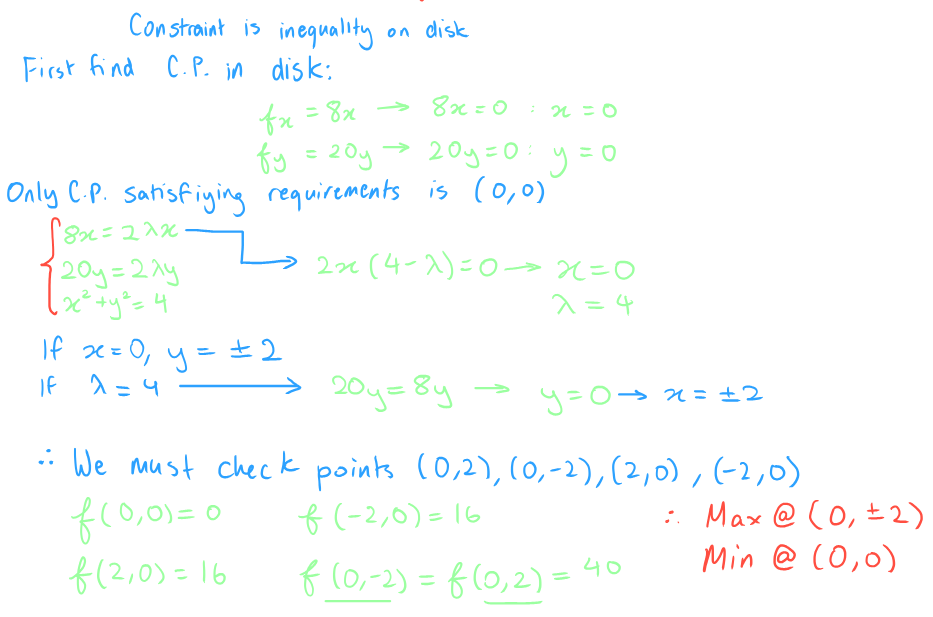 Constraint is inequality on disk
First find C.P. in disk:
fx = 8x → 8x=0 : x = 0
fy = 20y → 20y=0: y = 0
Only C.P. satisfiying requirements is (0,0)
8x = 2λx → 2x(4-λ)=0 → x=0
20y = 2λy
x²+y²=4 λ = 4
If x=0, y = ±2
If λ=4 → 20y=8y → y=0 → x = ±2
∴ We must check points (0,2), (0,-2), (2,0), (-2,0)
f(0,0)=0 f(-2,0)=16 ∴ Max @ (0, ±2)
Min @ (0,0)
f(2,0)=16 f(0,-2) = f(0,2) = 40